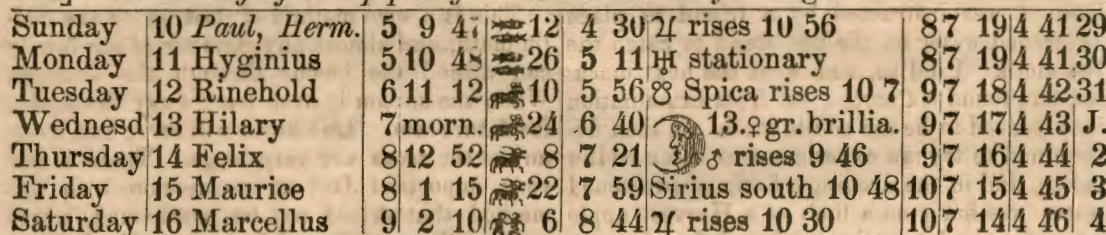 Sunday 10 Paul, Herm. 5 9 47 12 4 30 ♃ rises 10 56 8 7 19 4 41 29
Monday 11 Hyginius 5 10 48 26 5 11 ♅ stationary 8 7 19 4 41 30
Tuesday 12 Rinehold 6 11 12 10 5 56 ☋ Spica rises 10 7 9 7 18 4 42 31
Wednesd 13 Hilary 7 morn. 24 6 40 13. ♀ gr. brillia. 9 7 17 4 43 J.
Thursday 14 Felix 8 12 52 8 7 21 ♂ rises 9 46 9 7 16 4 44 2
Friday 15 Maurice 8 1 15 22 7 59 Sirius south 10 48 10 7 15 4 45 3
Saturday 16 Marcellus 9 2 10 6 8 44 ♃ rises 10 30 10 7 14 4 46 4